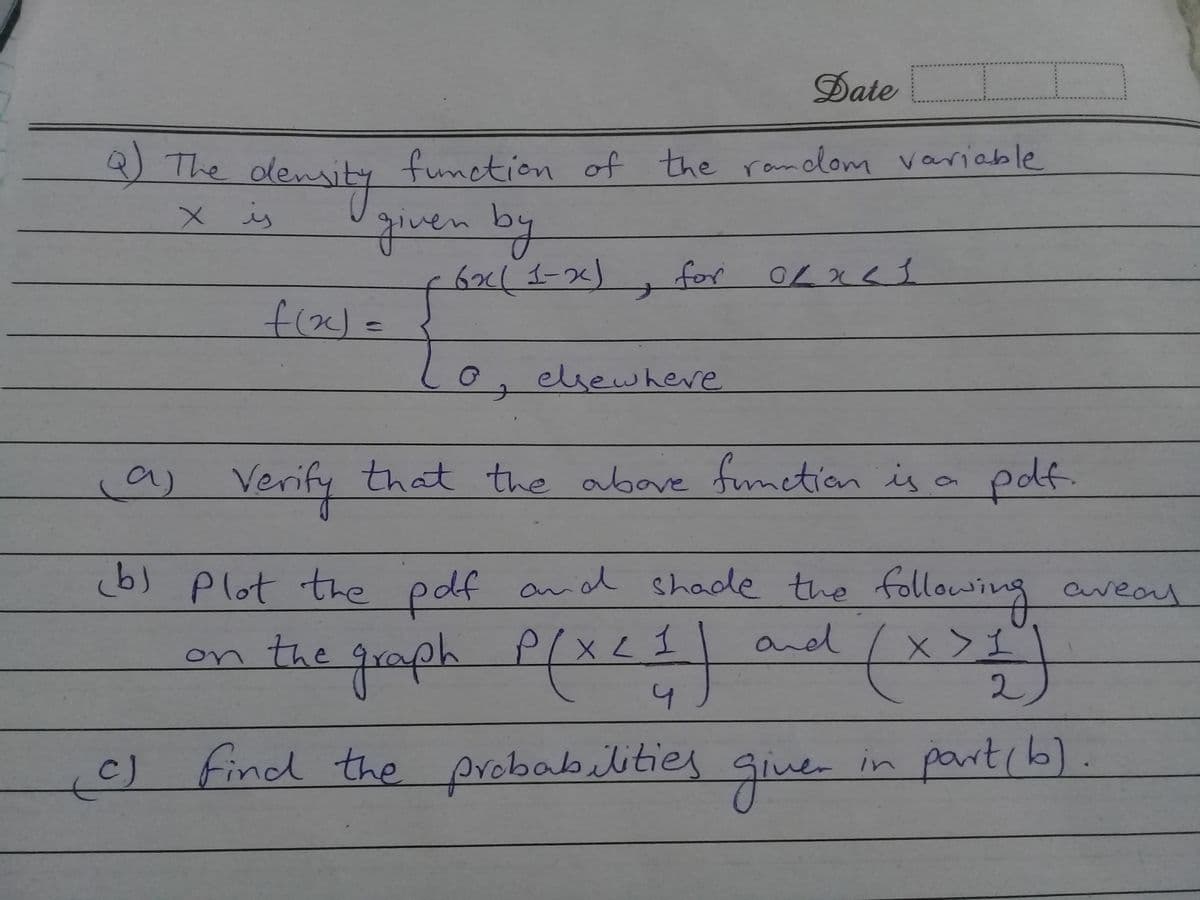 Date
Q) The density function of the random variable
X is given by
f(x) = { 6x(1-x) , for 0<x<1
0, elsewhere
(a) Verify that the above function is a pdf.
(b) Plot the pdf and shade the following areas
on the graph P(X<1/4) and (X>1/2)
(c) find the probabilities given in part(b).